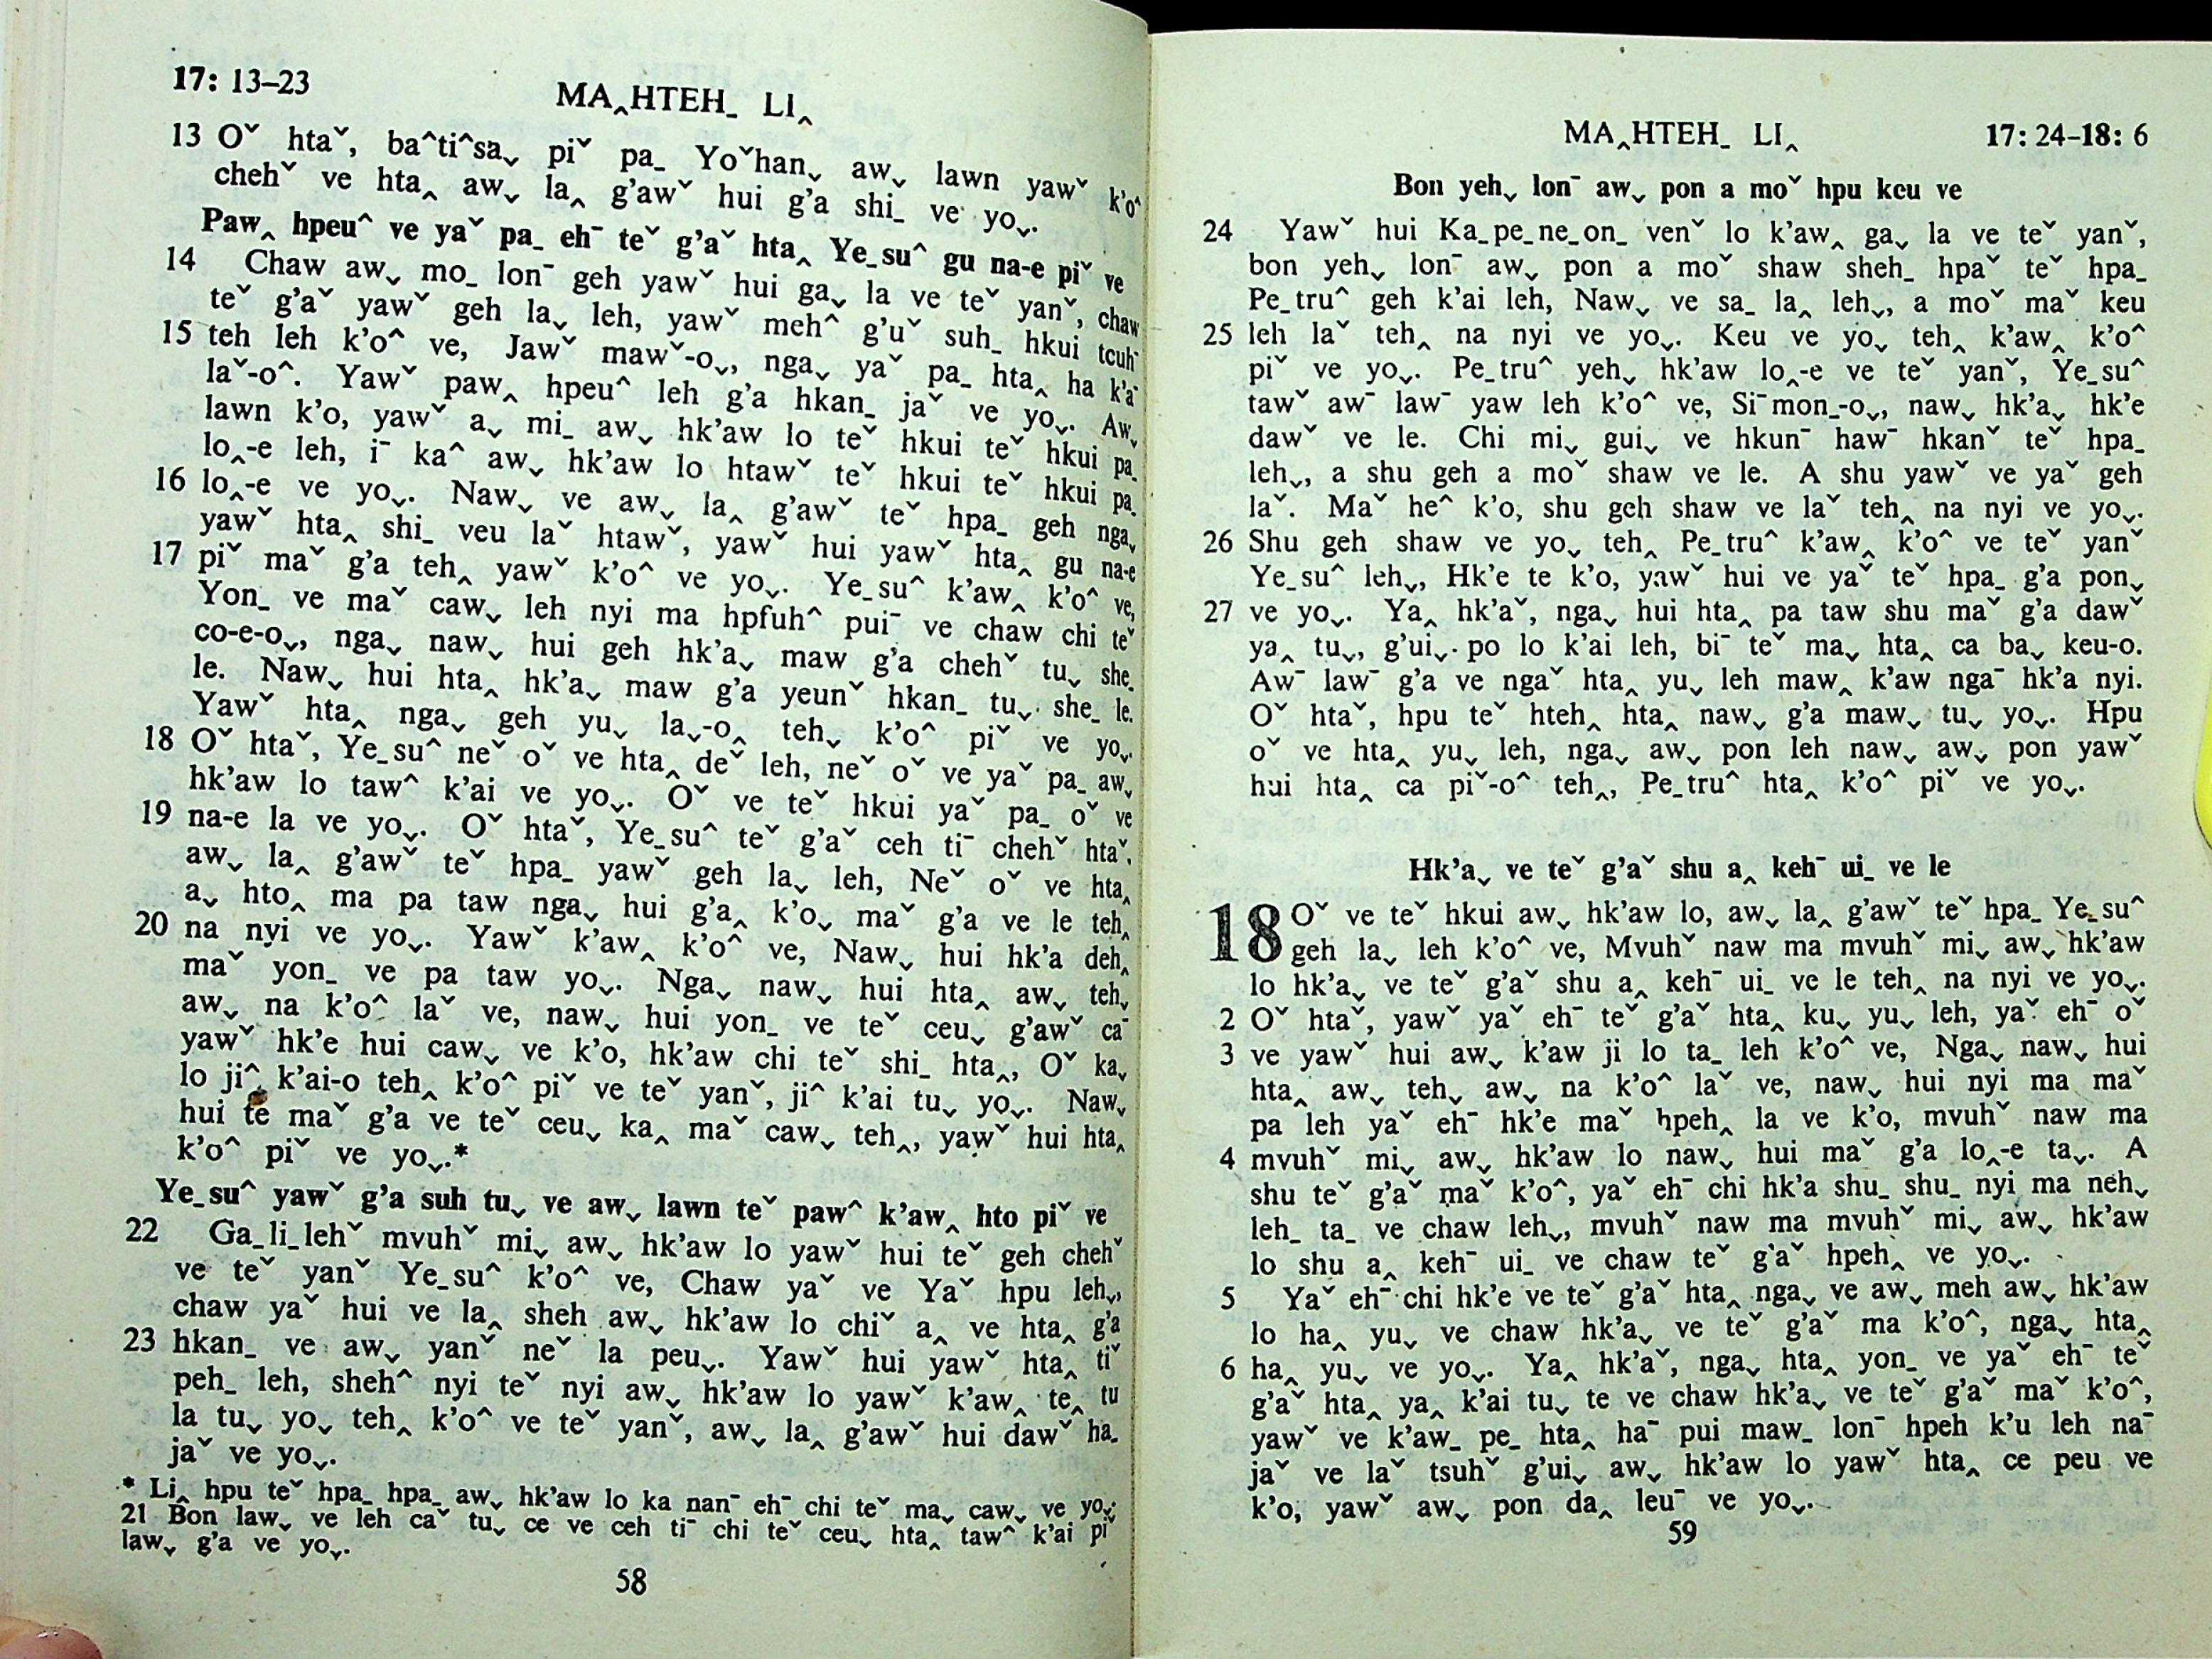 17: 13–23
MA‸HTEH_ LI‸
13 Oˇ htaˇ, ba^ti^saˬ piˇ pa_ Yoˇhanˬ awˬ lawn yawˇ k'o^
chehˇ ve hta‸ awˬ la‸ g'awˇ hui g'a shi_ ve yoˬ.
Paw‸ hpeu^ ve yaˇ pa_ ehˉ teˇ g'aˇ hta‸ Ye_su^ gu na-e piˇ ve
14 Chaw awˬ mo_ lonˉ geh yawˇ hui gaˬ la ve teˇ yanˇ, chaw
teˇ g'aˇ yawˇ geh laˬ leh, yawˇ meh^ g'uˇ suh_ hkui tcuhˉ
15 teh leh k'o^ ve, Jawˇ mawˇ-oˬ, ngaˬ yaˇ pa_ hta‸ ha k'aˉ
laˇ-o^. Yawˇ paw‸ hpeu^ leh g'a hkan_ jaˇ ve yoˬ. Awˬ
lawn k'o, yawˇ aˬ mi_ awˬ hk'aw lo teˇ hkui teˇ hkui pa_
lo‸-e leh, iˉ ka^ awˬ hk'aw lo htawˇ teˇ hkui teˇ hkui pa_
16 lo‸-e ve yoˬ. Nawˬ ve awˬ la‸ g'awˇ teˇ hpa_ geh ngaˬ
yawˇ hta‸ shi_ veu laˇ htawˇ, yawˇ hui yawˇ hta‸ gu na-e
17 piˇ maˇ g'a teh‸ yawˇ k'o^ ve yoˬ. Ye_su^ k'aw‸ k'o^ ve,
Yon_ ve maˇ cawˬ leh nyi ma hpfuh^ puiˉ ve chaw chi teˇ
co-e-oˬ, ngaˬ nawˬ hui geh hk'aˬ maw g'a chehˇ tuˬ she_
le. Nawˬ hui hta‸ hk'aˬ maw g'a yeunˇ hkan_ tuˬ she_ le.
Yawˇ hta‸ ngaˬ geh yuˬ laˬ-o‸ tehˬ k'o^ piˇ ve yoˬ.
18 Oˇ htaˇ, Ye_su^ neˇ oˇ ve hta‸ deˇ leh, neˇ oˇ ve yaˇ pa_ awˬ
hk'aw lo taw^ k'ai ve yoˬ. Oˇ ve teˇ hkui yaˇ pa_ oˇ ve
19 na-e la ve yoˬ. Oˇ htaˇ, Ye_su^ teˇ g'aˇ ceh tiˉ chehˇ htaˇ,
awˬ la‸ g'awˇ teˇ hpa_ yawˇ geh laˬ leh, Neˇ oˇ ve hta‸
aˬ hto‸ ma pa taw ngaˬ hui g'a‸ k'oˬ maˇ g'a ve le teh‸
20 na nyi ve yoˬ. Yawˇ k'aw‸ k'o^ ve, Nawˬ hui hk'a deh‸
maˇ yon_ ve pa taw yoˬ. Ngaˬ nawˬ hui hta‸ awˬ tehˬ
awˬ na k'o^ laˇ ve, nawˬ hui yon_ ve teˇ ceuˬ g'awˇ caˉ
yawˇ hk'e hui cawˬ ve k'o, hk'aw chi teˇ shi_ hta‸, Oˇ kaˬ
lo ji^ k'ai-o teh‸ k'o^ piˇ ve teˇ yanˇ, ji^ k'ai tuˬ yoˬ. Nawˬ
hui te maˇ g'a ve teˇ ceuˬ ka‸ maˇ cawˬ teh‸, yawˇ hui hta‸
k'o^ piˇ ve yoˬ.*
Ye_su^ yawˇ g'a suh tuˬ ve awˬ lawn teˇ paw^ k'aw‸ hto piˇ ve
22 Ga_li_lehˇ mvuhˇ miˬ awˬ hk'aw lo yawˇ hui teˇ geh chehˇ
ve teˇ yanˇ Ye_su^ k'o^ ve, Chaw yaˇ ve Yaˇ hpu lehˬ,
chaw yaˇ hui ve la‸ sheh awˬ hk'aw lo chiˇ a‸ ve hta‸ g'a
23 hkan_ ve awˬ yanˇ neˇ la peuˬ. Yawˇ hui yawˇ hta‸ tiˇ
peh_ leh, sheh^ nyi teˇ nyi awˬ hk'aw lo yawˇ k'aw‸ te‸ tu
la tuˬ yoˬ teh‸ k'o^ ve teˇ yanˇ, awˬ la‸ g'awˇ hui dawˇ ha_
jaˇ ve yoˬ.
* Li‸ hpu teˇ hpa_ hpa_ awˬ hk'aw lo ka nanˉ ehˉ chi teˇ maˬ cawˬ ve yoˬ:
21 Bon lawˬ ve leh caˇ tuˬ ce ve ceh tiˉ chi teˇ ceuˬ hta‸ taw^ k'ai piˇ
lawˬ g'a ve yoˬ.
58
MA‸HTEH_ LI‸ 17: 24–18: 6
Bon yehˬ lonˉ awˬ pon a moˇ hpu keu ve
24 Yawˇ hui Ka_pe_ne_on_ venˇ lo k'aw‸ gaˬ la ve teˇ yanˇ,
bon yehˬ lonˉ awˬ pon a moˇ shaw sheh_ hpaˇ teˇ hpa_
Pe_tru^ geh k'ai leh, Nawˬ ve sa_ la‸ lehˬ, a moˇ maˇ keu
25 leh laˇ teh‸ na nyi ve yoˬ. Keu ve yoˬ teh‸ k'aw‸ k'o^
piˇ ve yoˬ. Pe_tru^ yehˬ hk'aw lo‸-e ve teˇ yanˇ, Ye_su^
tawˇ awˉ lawˉ yaw leh k'o^ ve, Siˉmon_-oˬ, nawˬ hk'aˬ hk'e
dawˇ ve le. Chi miˬ guiˬ ve hkunˉ hawˉ hkanˇ teˇ hpa_
lehˬ, a shu geh a moˇ shaw ve le. A shu yawˇ ve yaˇ geh
laˇ. Maˇ he^ k'o, shu geh shaw ve laˇ teh‸ na nyi ve yoˬ.
26 Shu geh shaw ve yoˬ teh‸ Pe_tru^ k'aw‸ k'o^ ve teˇ yanˇ
Ye_su^ lehˬ, Hk'e te k'o, yawˇ hui ve yaˇ teˇ hpa_ g'a ponˬ
27 ve yoˬ. Ya‸ hk'aˇ, ngaˬ hui hta‸ pa taw shu maˇ g'a dawˇ
ya‸ tuˬ, g'uiˬ po lo k'ai leh, biˉ teˇ maˬ hta‸ ca baˬ keu-o.
Awˉ lawˉ g'a ve ngaˇ hta‸ yuˬ leh maw‸ k'aw ngaˉ hk'a nyi.
Oˇ htaˇ, hpu teˇ hteh‸ hta‸ nawˬ g'a mawˬ tuˬ yoˬ. Hpu
oˇ ve hta‸ yuˬ leh, ngaˬ awˬ pon leh nawˬ awˬ pon yawˇ
hui hta‸ ca piˇ-o^ teh‸, Pe_tru^ hta‸ k'o^ piˇ ve yoˬ.
Hk'aˬ ve teˇ g'aˇ shu a‸ kehˉ ui_ ve le
18 Oˇ ve teˇ hkui awˬ hk'aw lo, awˬ la‸ g'awˇ teˇ hpa_ Ye_su^
geh laˬ leh k'o^ ve, Mvuhˇ naw ma mvuhˇ miˬ awˬ hk'aw
lo hk'aˬ ve teˇ g'aˇ shu a‸ kehˉ ui_ ve le teh‸ na nyi ve yoˬ.
2 Oˇ htaˇ, yawˇ yaˇ ehˉ teˇ g'aˇ hta‸ kuˬ yuˬ leh, yaˇ ehˉ oˇ
3 ve yawˇ hui awˬ k'aw ji lo ta_ leh k'o^ ve, Ngaˬ nawˬ hui
hta‸ awˬ tehˬ awˬ na k'o^ laˇ ve, nawˬ hui nyi ma maˇ
pa leh yaˇ ehˉ hk'e maˇ hpeh‸ la ve k'o, mvuhˇ naw ma
4 mvuhˇ miˬ awˬ hk'aw lo nawˬ hui maˇ g'a lo‸-e taˬ. A
shu teˇ g'aˇ maˇ k'o^, yaˇ ehˉ chi hk'a shu_ shu_ nyi ma nehˬ
leh_ ta_ ve chaw lehˬ, mvuhˇ naw ma mvuhˇ miˬ awˬ hk'aw
lo shu a‸ kehˉ ui_ ve chaw teˇ g'aˇ hpeh‸ ve yoˬ.
5 Yaˇ ehˉ chi hk'e ve teˇ g'aˇ hta‸ ngaˬ ve awˬ meh awˬ hk'aw
lo ha‸ yuˬ ve chaw hk'aˬ ve teˇ g'aˇ ma k'o^, ngaˬ hta‸
6 ha‸ yuˬ ve yoˬ. Ya‸ hk'aˇ, ngaˬ hta‸ yon_ ve yaˇ ehˉ teˇ
g'aˇ hta‸ ya‸ k'ai tuˬ te ve chaw hk'aˬ ve teˇ g'aˇ maˇ k'o^,
yawˇ ve k'aw_ pe_ hta‸ haˉ pui maw_ lonˉ hpeh k'u leh naˉ
jaˇ ve laˇ tsuhˇ g'uiˬ awˬ hk'aw lo yawˇ hta‸ ce peu ve
k'o, yawˇ awˬ pon da‸ leuˉ ve yoˬ.
59